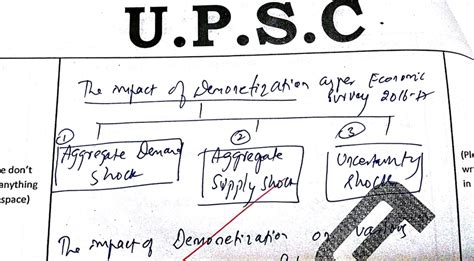 U.P.S.C
The impact of Demonetization as per Economic
Survey 2016-17
① ② ③
Aggregate Demand
Shock
Aggregate
Supply Shock
Uncertainty
Shock
e don't
anything
space)
(Pl
wr
in
The impact of Demonetization on various